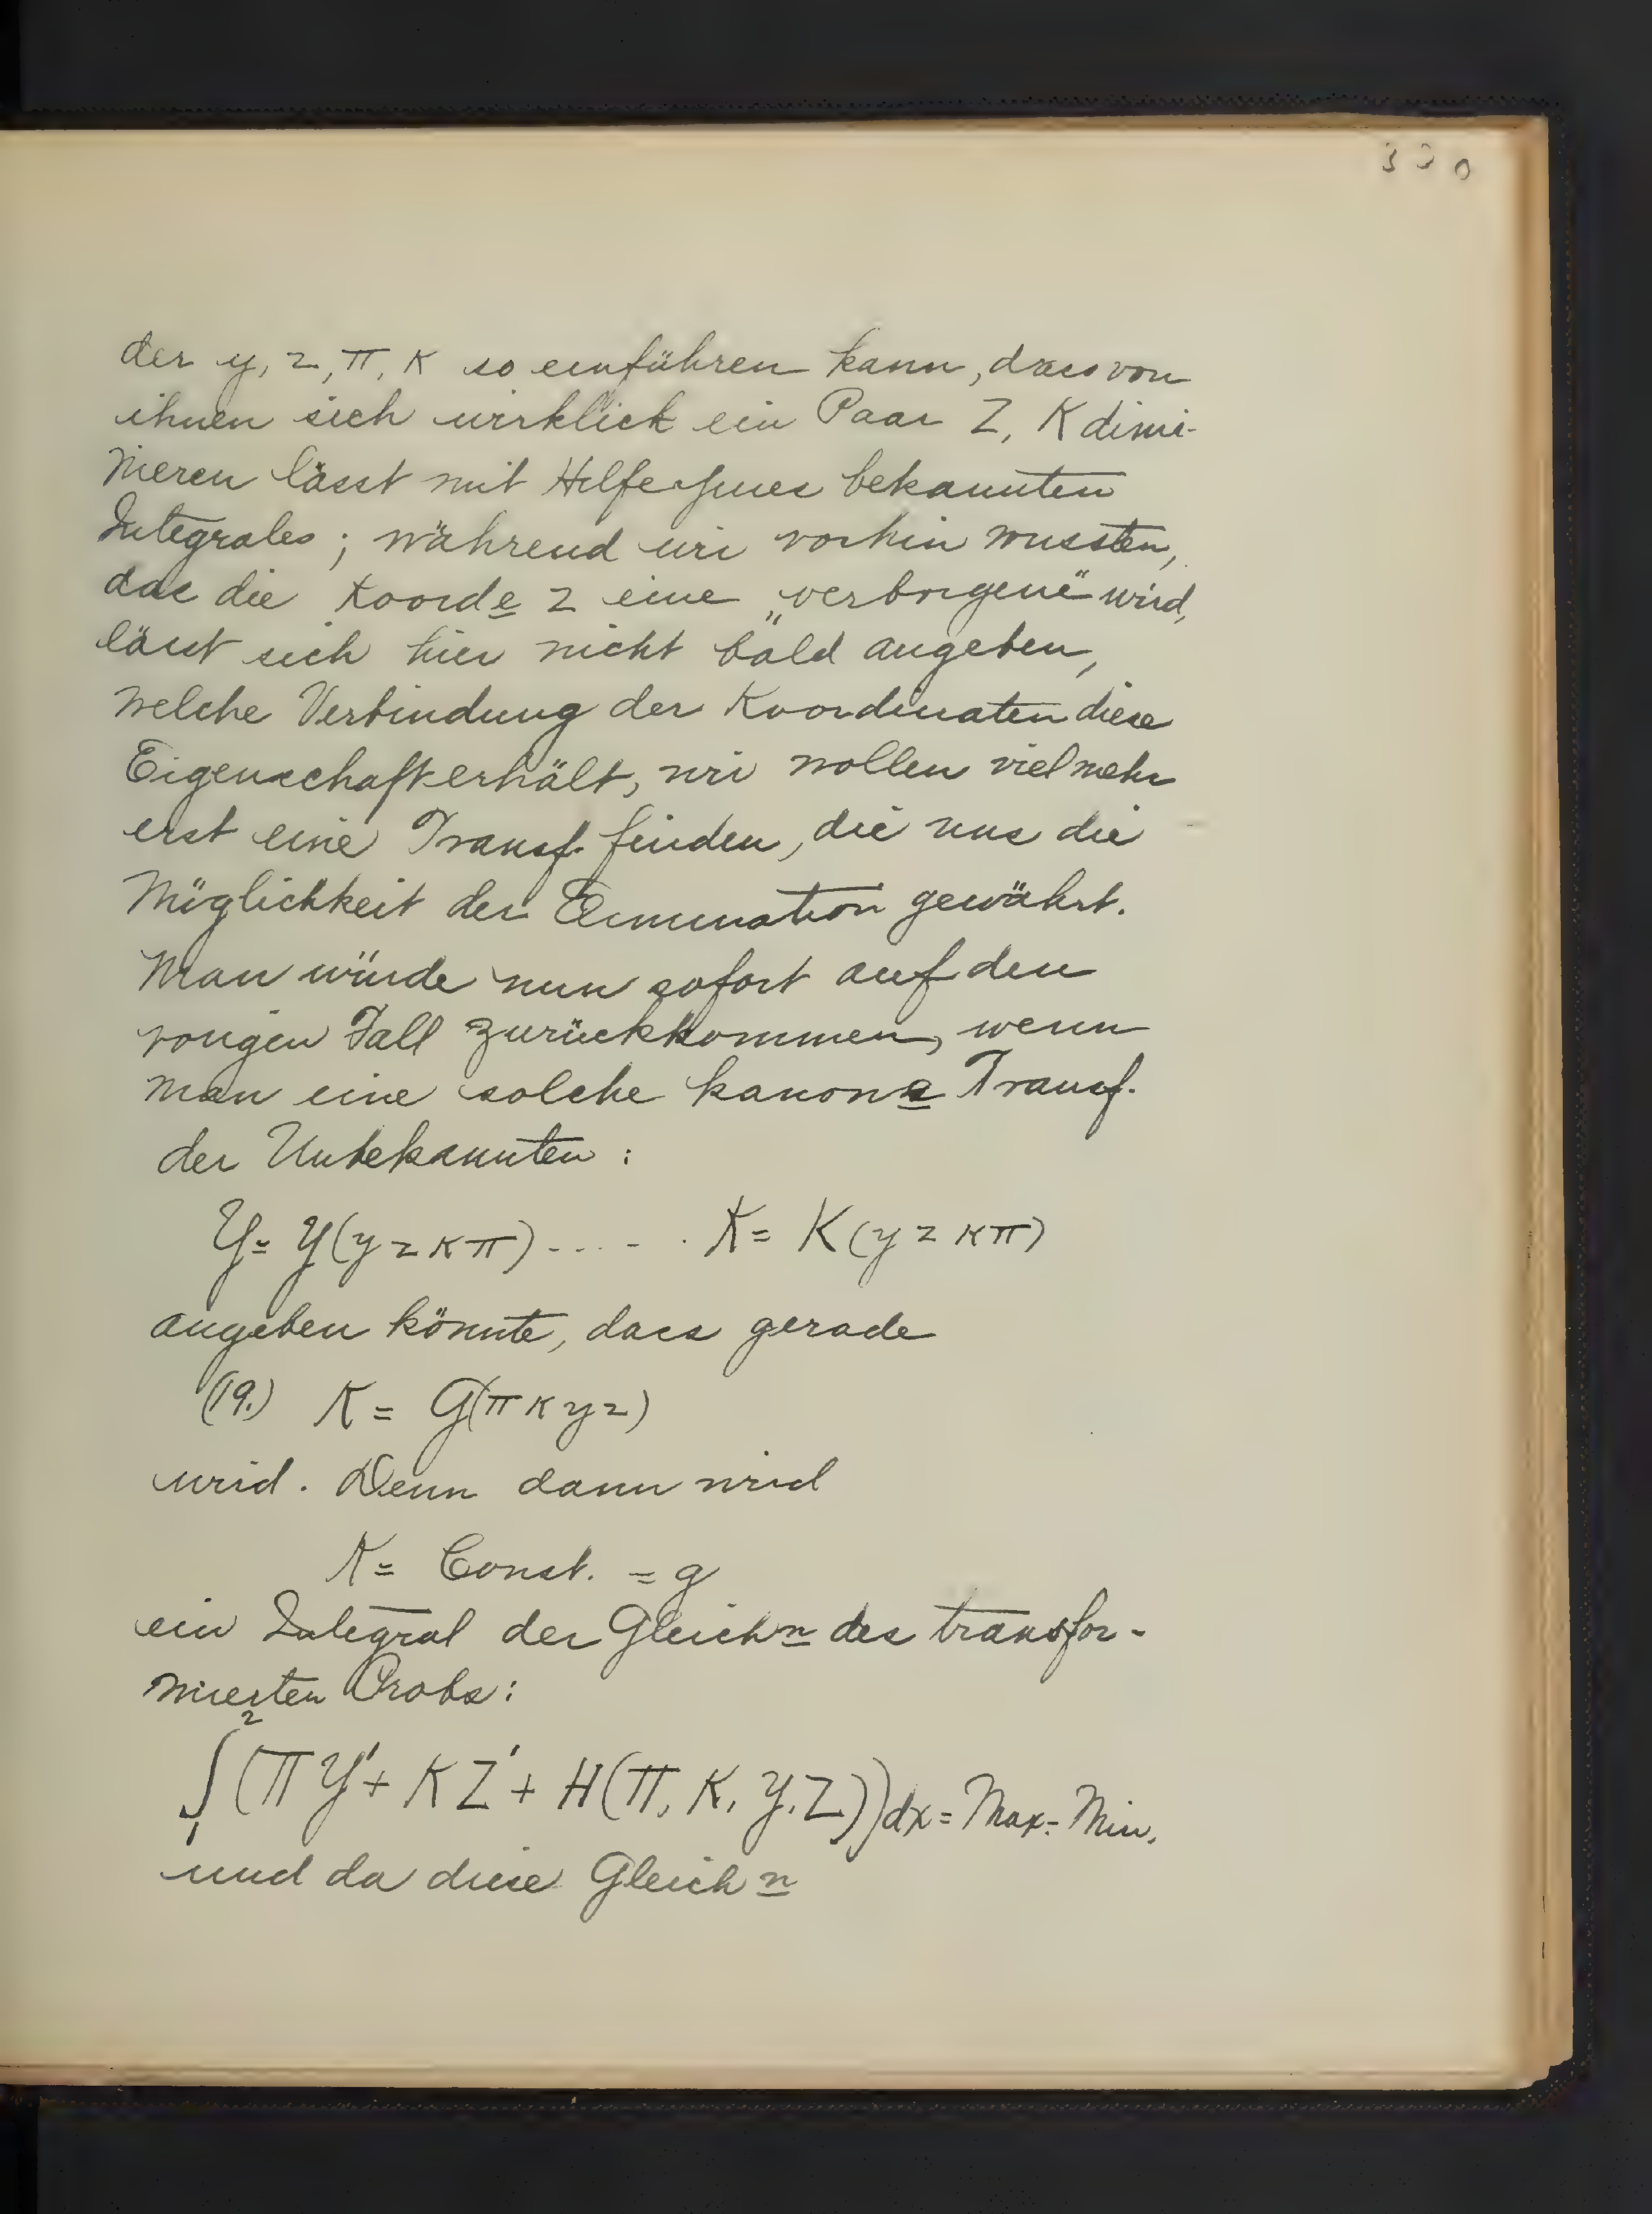 330
der y, z, π, κ so einführen kann, dass von
ihnen sich wirklich ein Paar Z, K elimi-
nieren lässt mit Hilfe jenes bekannten
Integrales; während wir vorhin wussten,
das die Koorde z eine „verborgene" wird,
lässt sich hier nicht bald angeben,
welche Verbindung der Koordinaten diese
Eigenschaft erhält, wir wollen vielmehr
erst eine Transf. finden, die uns die
Möglichkeit der Elimination gewährt.
Man würde nun sofort auf den
vorigen Fall zurückkommen, wenn
man eine solche kanone Transf.
der Unbekannten:
Y = Y(y z κ π) ..... K = K(y z κ π)
angeben könnte, dass gerade
(19.) K = G(π κ y z)
wird. Denn dann wird
K = Const. = g
ein Integral der Gleichn des transfor-
mierten Probs:
∫₁² (Π Y' + K Z' + H(Π, K, Y, Z)) dx = Max = Min.
und da diese Gleichn